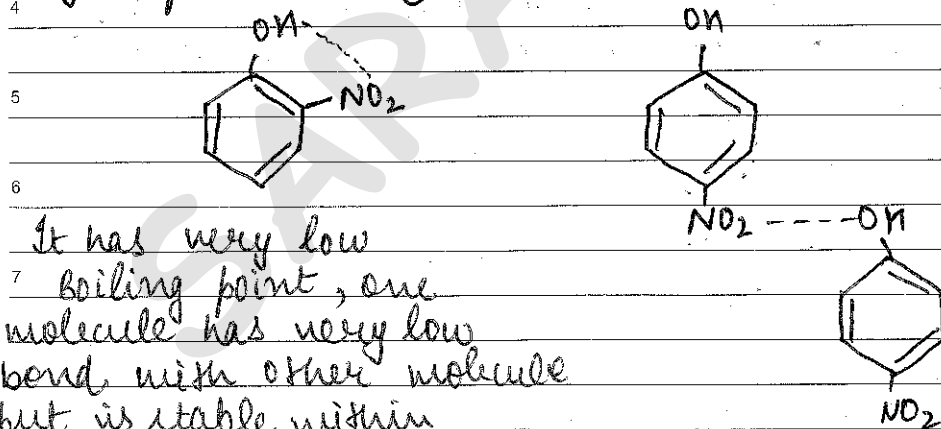 4
OH
OH
5
NO2
6
NO2 ---- OH
It has very low
7
boiling point, one
molecule has very low
bond with other molecule
but is stable within
NO2
SARA